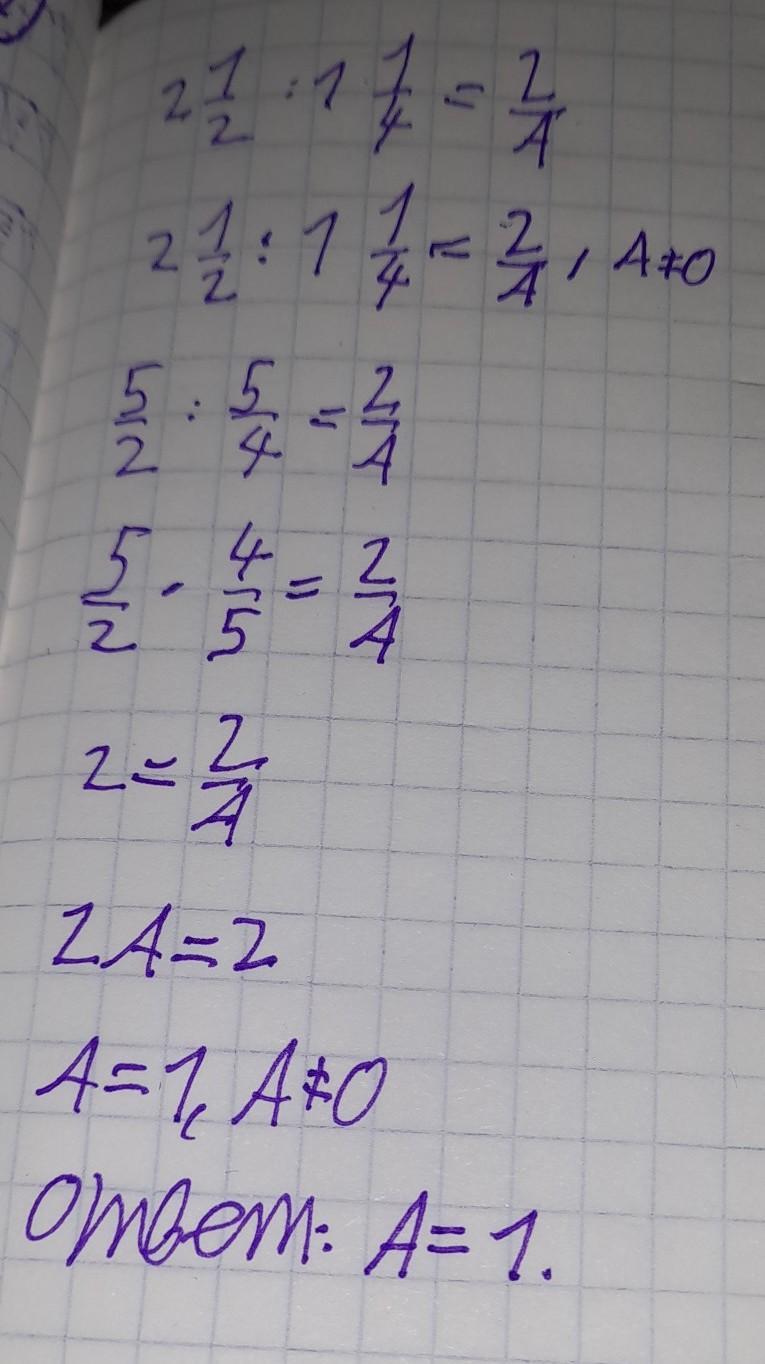 2 1/2 : 1 1/4 = 2/A
2 1/2 : 1 1/4 = 2/A, A≠0
5/2 : 5/4 = 2/A
5/2 · 4/5 = 2/A
2 = 2/A
2A=2
A=1, A≠0
Ответ: A=1.